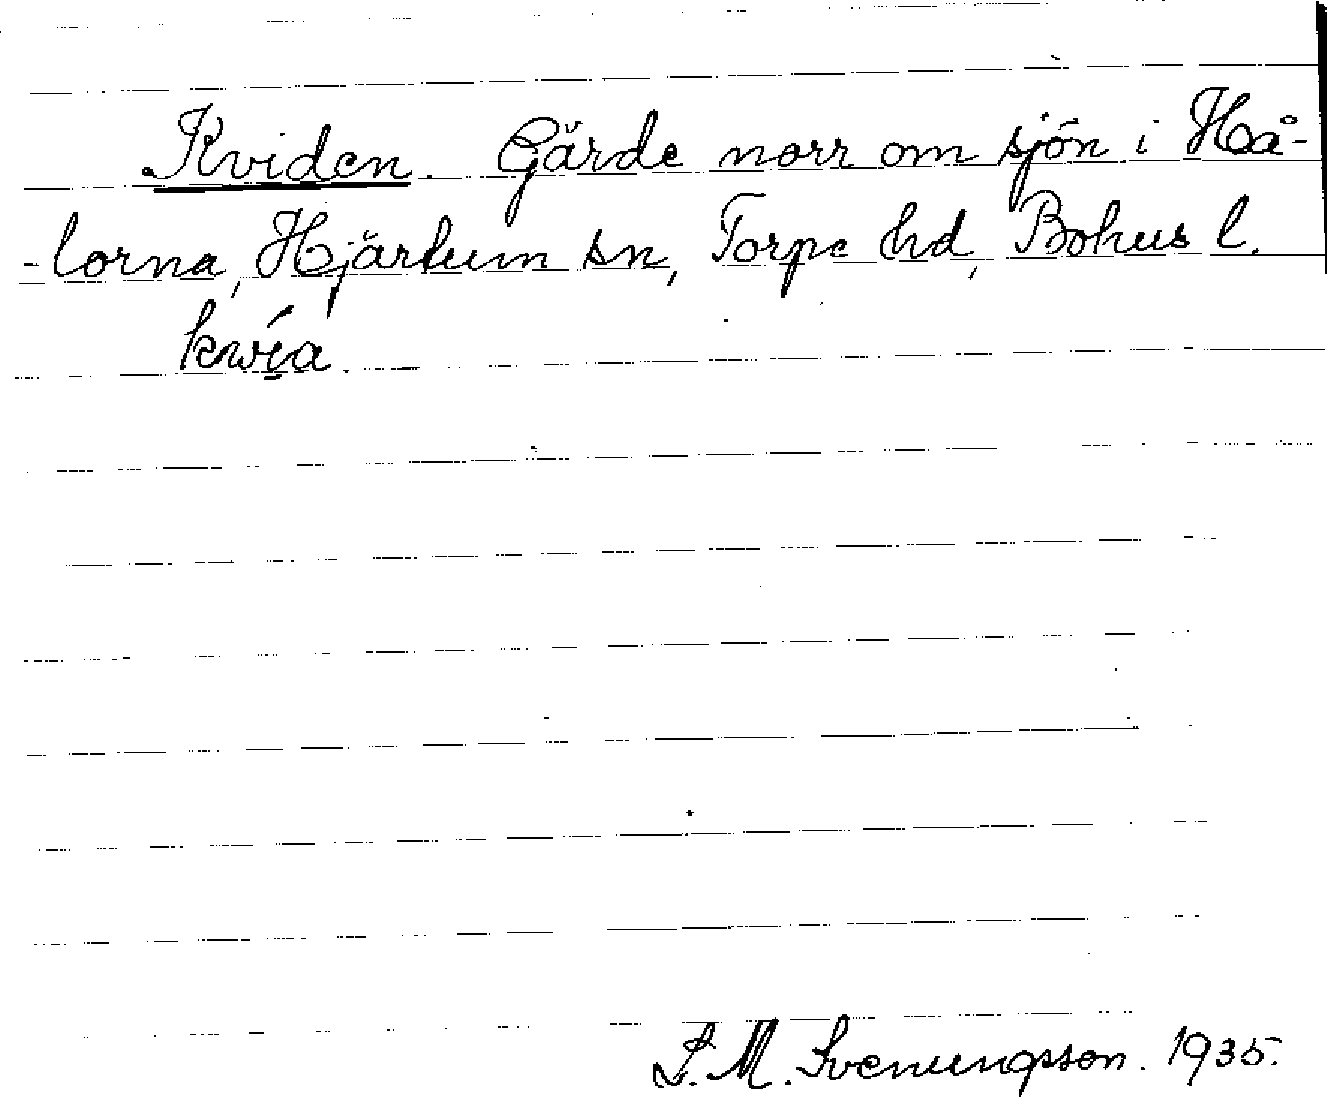 Kviden. Gärde norr om sjön i Hå-
-lorna, Hjärtum sn, Torpe hd, Bohus l.
kwí̱a.
S. M. Svenungsson. 1935.